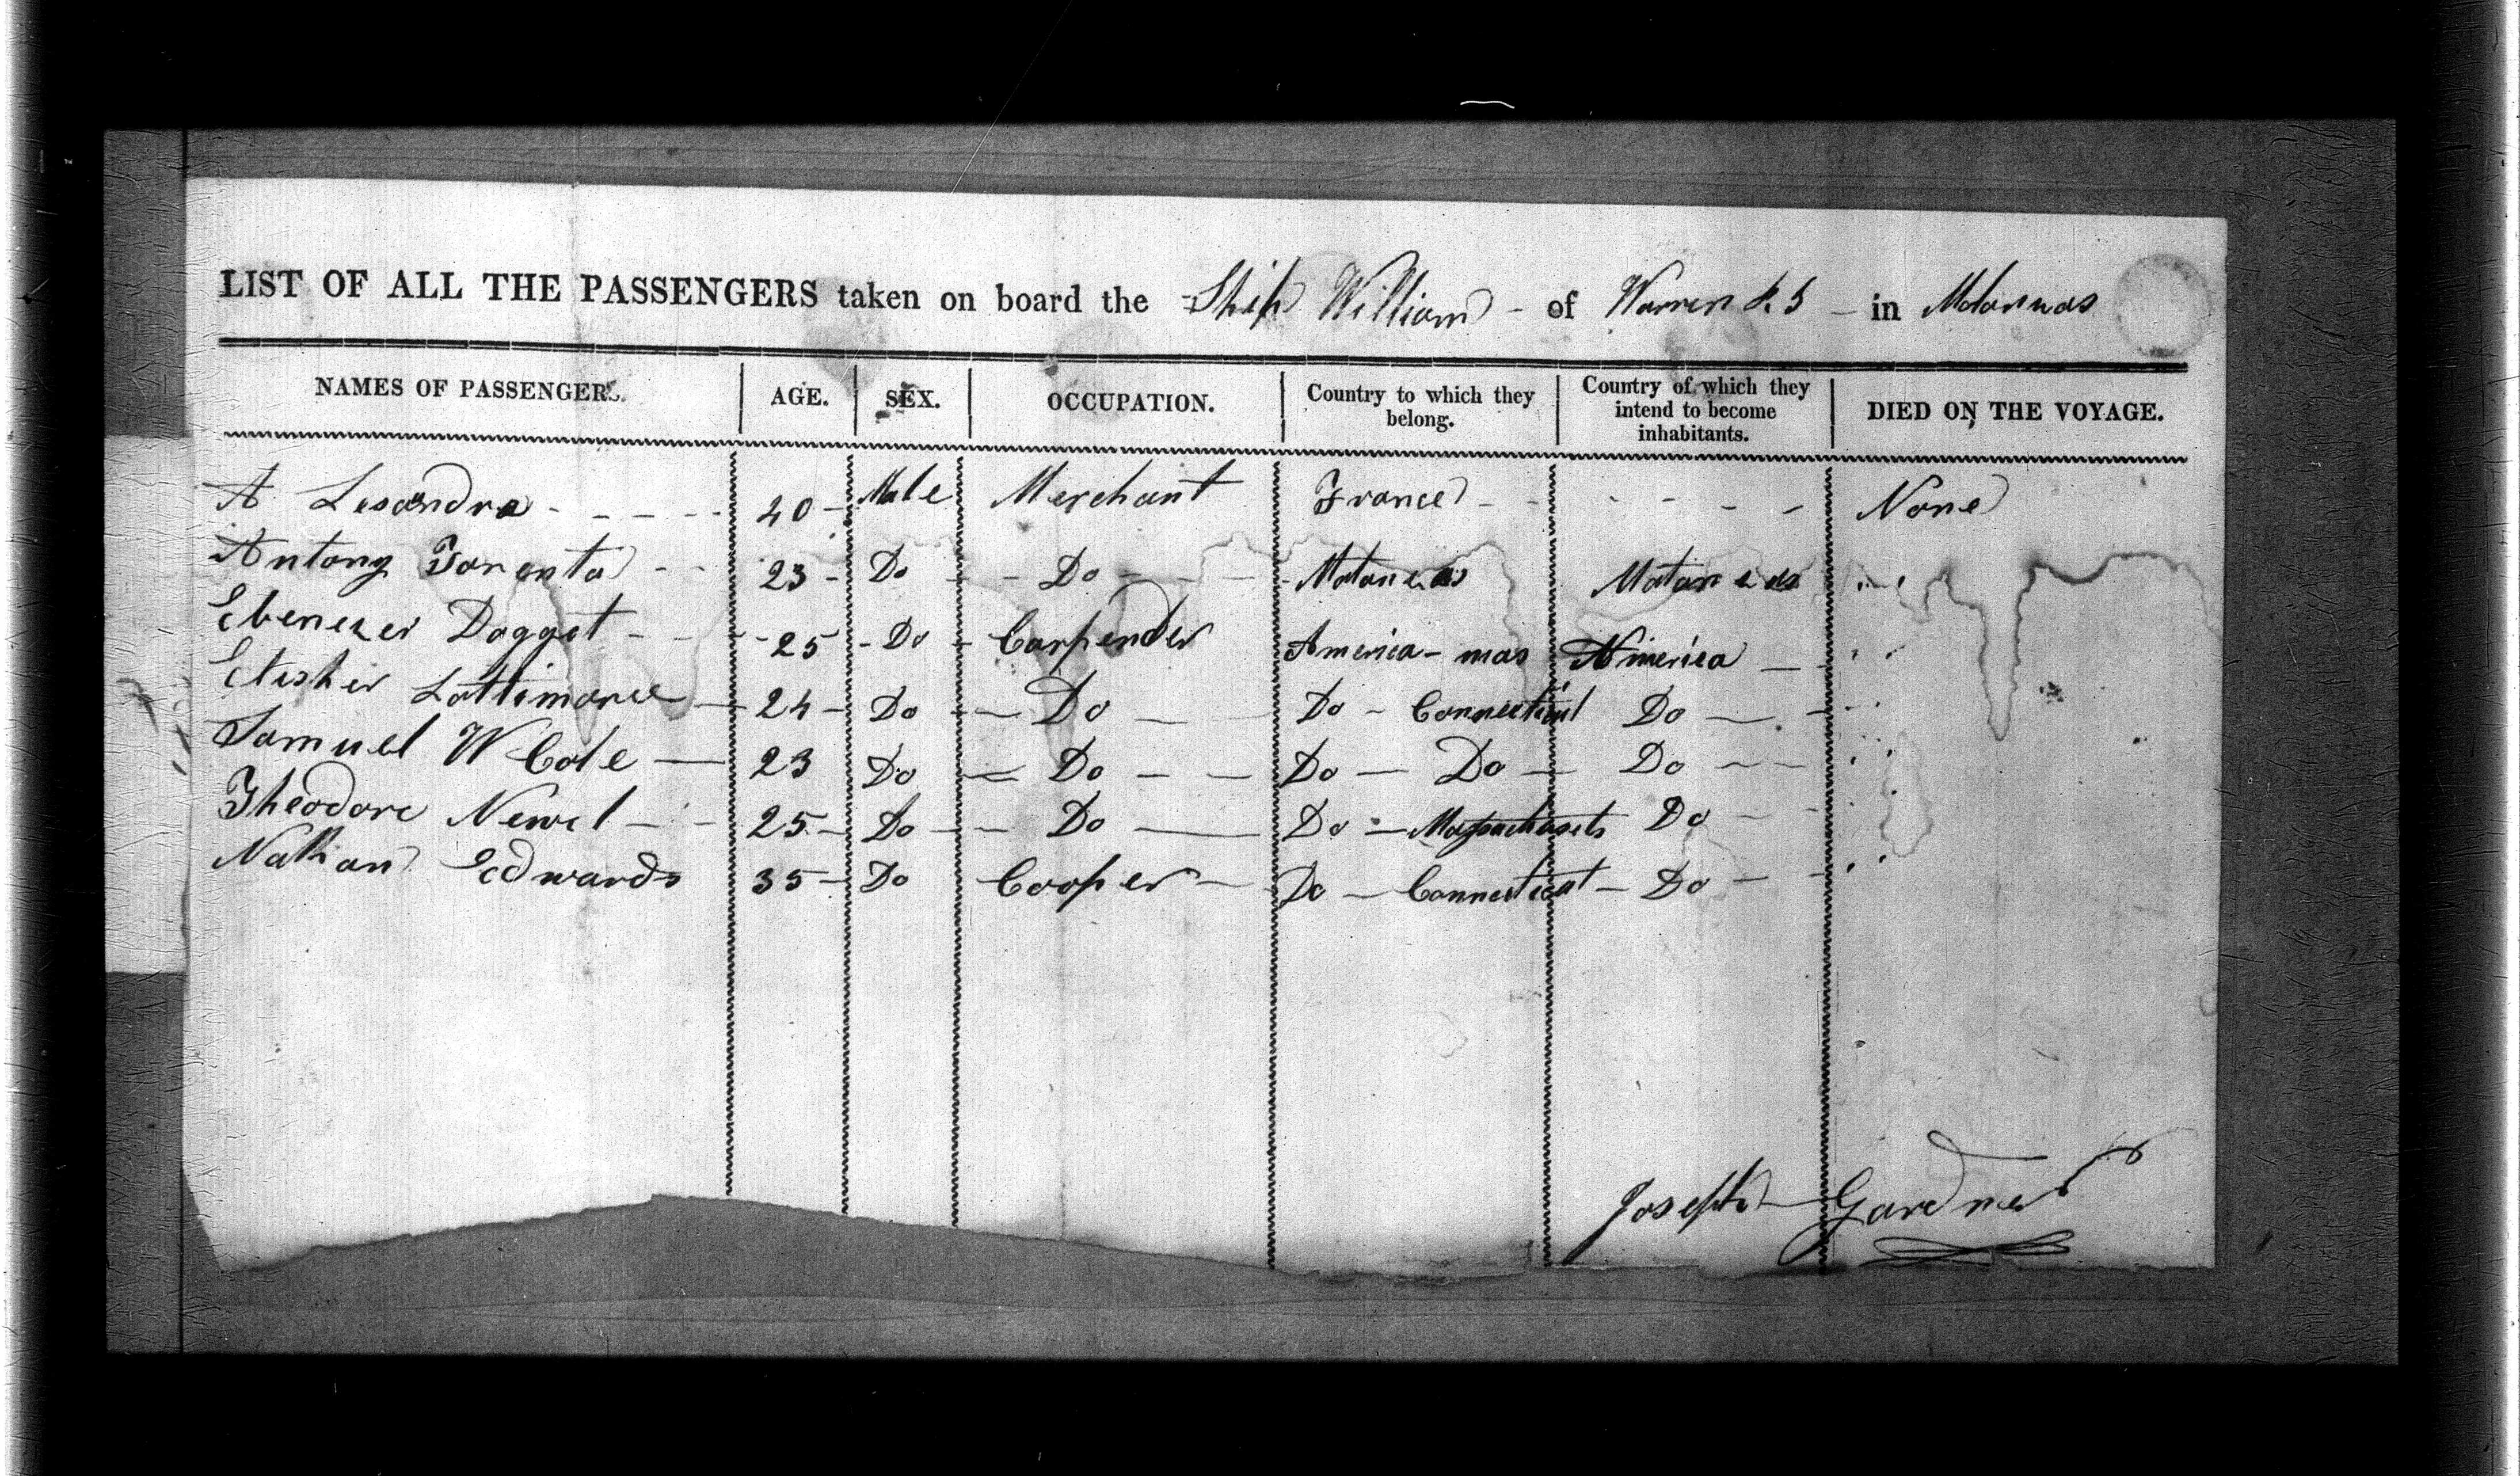 LIST OF ALL THE PASSENGERS taken on board the Ship William - of Warren - in Matanzas
NAMES OF PASSENGERS. AGE. SEX. OCCUPATION. Country to which they belong. Country of which they intend to become inhabitants. DIED ON THE VOYAGE.
A Lesandra - - - - 40 - Male Merchant France - - - - - - None
Antony - - 23 - Do - - Do - - - Matanzas Matanzas
Ebenezer Dogget - - - 25 - Do - Carpender America - mas America -
Elisher Lattimore - 24 - Do - - Do - - Do - Connecticut Do - -
Samuel W Cole - 23 Do - Do - - Do - Do - Do - - -
Theodore Newel - - - 25 - Do - - Do - Do - Massachusets Do - -
Nathan Edwards 35 - Do Cooper - Do - Connecticut - Do - -
Joseph Gardner